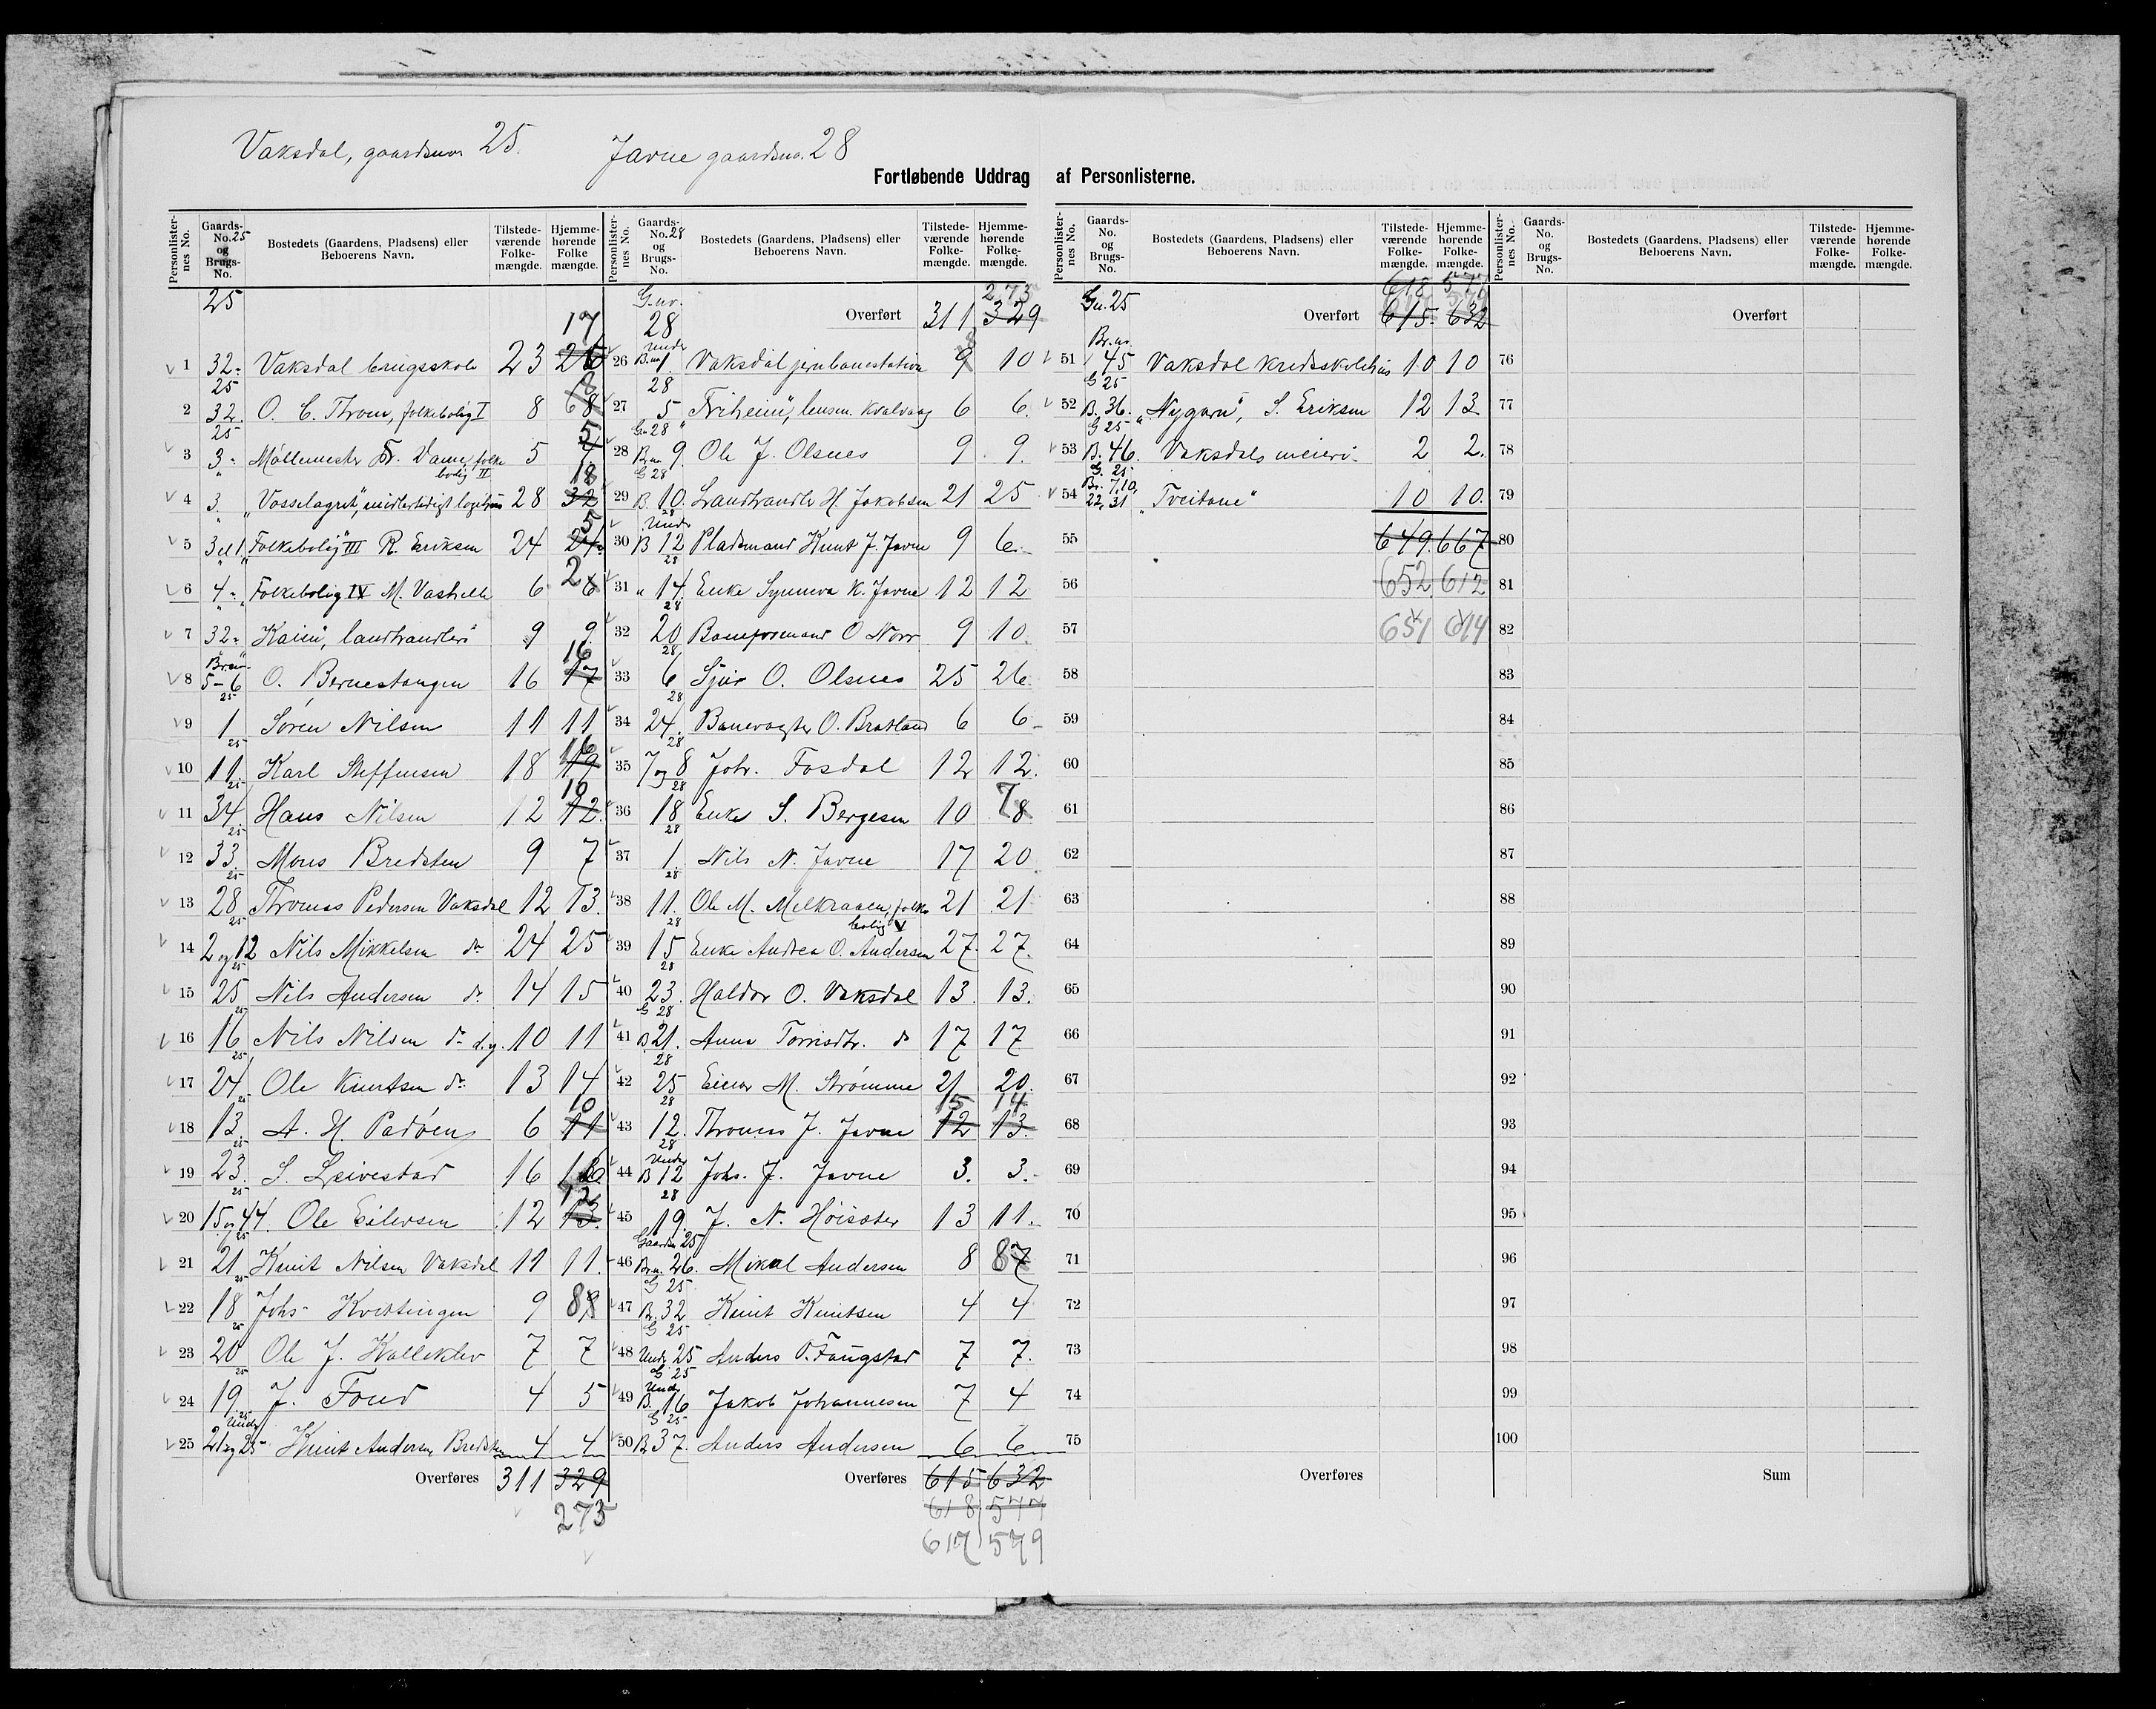 Vaksdal, gaardsno 25. Javne gaardsno. 28
Fortløbende Uddrag af Personlisterne.
Personlisternes No. Gaards-No. 25 og Brugs-No. Bostedets (Gaardens, Pladsens) eller Beboerens Navn. Tilstedeværende Folkemængde. Hjemmehørende Folkemængde.
25
1 32 Vaksdal brugsskole 23 26 17
25
2 32. O. C. Thom, folkebolig I 8 68 8
25
3 3 Møllemester Fr. Damm, folkebolig II 5 5
4 3 "Vosselagret", midlertidigt logihus 28 32 18
5 3 el 1 "Folkebolig" III R. Eriksen 24 24 5
6 4 Folkebolig IV M. Vashelle 6 6 2
7 32 "Kaim", landhandleri 9 9
8 Brn. 5-6 O. Bernestangen 16 17 16
25
9 1 Søren Nilsen 11 11
25
10 11 Karl Steffensen 18 19 16
25
11 34 Hans Nilsen 12 12. 10
25
12 33 Mons Bredsten 9 7
25
13 28 Thomas Pedersen Vaksdal 12 13.
25
14 2 og 12 Nils Mikkelsen do 24 25
25
15 25 Nils Andersen do 14 15
25
16 16 Nils Nilsen do d.y. 10 11
25
17 24 Ole Knutsen do 13 14
25
18 13 A. H. Padøen 6 11 10
25
19 23. S. Leivestad 16 16
25
20 15 og 44. Ole Eilersen 12 13. 12
25
21 21 Knut Nilsen Vaksdal 11 11.
25
22 18 Johs Kvistingen 9 8
25
23 20 Ole J. Kalleklev 7 7
25
24 19 J. Foud 4 5
25
25 Under 21 og 25 Knut Andersen Bredsten 4 4
Overføres 311 329
273
Personlisternes No. Gaards-No. 28 og Brugs-No. Bostedets (Gaardens, Pladsens) eller Beboerens Navn. Tilstedeværende Folkemængde. Hjemmehørende Folkemængde.
273
G.nr. 28 Overført 311 329
26 Under B.no 1 Vaksdal jernbanestation 9 10
28
27 5 "Friheim", lensm. Kvalvaag 6 6.
Gn 28
28 Bno 9 Ole J. Olsnes 9 9.
G 28
29 B. 10. Landhandler H. Jakobsen 21 25
28
30 Under B 12 Pladsmand Knut J. Javne 9 6.
28
31 14. Enke Synneva K. Javne 12 12
28
32 20 Baneformand O Norr 9 10.
28
33 6 Sjur O. Olsnes 25 26
28
34 24. Banevogter O. Bratland 6 6
28
35 7 og 8 Joh. Fosdal 12 12.
28
36 18 Enke S. Bergesen 10 8 7
28
37 1. Nils N. Javne 17 20
28
38 11. Ole M. Melkraaen, folkebolig V 21 21
28
39 15 Enke Andrea O. Andersen 27. 27.
28
40 23. Haldor O. Vaksdal 13. 13.
G 28
41 B 21. Anna Torrisdtr. do 17 17
28
42 25 Einar M. Strømme 21 20.
28
43 12. Thomas J. Javne 12 13. 15 14
28
44 Under B 12 Johs. J. Javne 3. 3.
28
45 19. J. N. Høisæter 13 11.
Gaardsn 25
46 Bn. 26. Mikal Andersen 8 87
G 25
47 B. 32 Knut Knutsen 4 4
G 25
48 Under 25 Anders O. Faugstad 7 7.
G 25
49 Under B. 16 Jakob Johannesen 7 4
G 25
50 B 37. Anders Andersen 6 6
Overføres 615 632
618 577
617 579
Personlisternes No. Gaards-No. og Brugs-No. Bostedets (Gaardens, Pladsens) eller Beboerens Navn. Tilstedeværende Folkemængde. Hjemmehørende Folkemængde.
618 577
Gn. 25 Overført 615. 632
51 Br.no 45 Vaksdal kredsskolehus 10 10
G 25
52 B. 36. "Nygarn", S. Eriksen 12 13
G 25
53 B. 46. Vaksdals meieri 2 2.
G. 25
54 Br. 7, 10, 22, 31 "Tveitane" 10 10.
55 649. 667
56 652 612
57 651 614
58
59
60
61
62
63
64
65
66
67
68
69
70
71
72
73
74
75
Overføres
Personlisternes No. Gaards-No. og Brugs-No. Bostedets (Gaardens, Pladsens) eller Beboerens Navn. Tilstedeværende Folkemængde. Hjemmehørende Folkemængde.
Overført
76
77
78
79
80
81
82
83
84
85
86
87
88
89
90
91
92
93
94
95
96
97
98
99
100
Sum